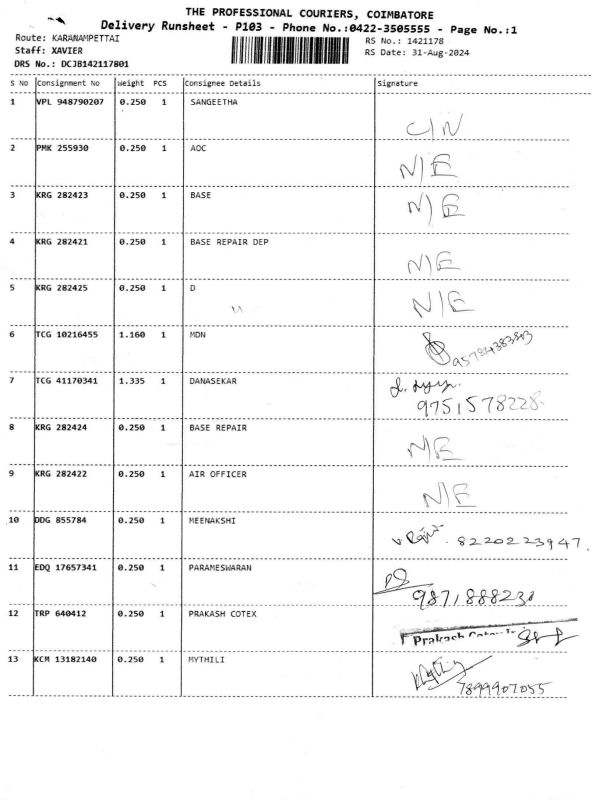 THE PROFESSIONAL COURIERS, COIMBATORE
Delivery Runsheet - P103 - Phone No.:0422-3505555 - Page No.:1
Route: KARANAMPETTAI
RS No.: 1421178
Staff: XAVIER
RS Date: 31-Aug-2024
DRS No.: DCJB142117801
S No Consignment No Weight PCS Consignee Details Signature
1 VPL 948790207 0.250 1 SANGEETHA
C/N
2 PMK 255930 0.250 1 AOC
N/E
3 KRG 282423 0.250 1 BASE
N/E
4 KRG 282421 0.250 1 BASE REPAIR DEP
N/E
5 KRG 282425 0.250 1 D
N/E
6 TCG 10216455 1.160 1 MDN
7 TCG 41170341 1.335 1 DANASEKAR
9751578228
8 KRG 282424 0.250 1 BASE REPAIR
N/E
9 KRG 282422 0.250 1 AIR OFFICER
N/E
10 DDG 855784 0.250 1 MEENAKSHI
8220223947.
11 EDQ 17657341 0.250 1 PARAMESWARAN
12 TRP 640412 0.250 1 PRAKASH COTEX
Prakash
13 KCM 13182140 0.250 1 MYTHILI
7899907055